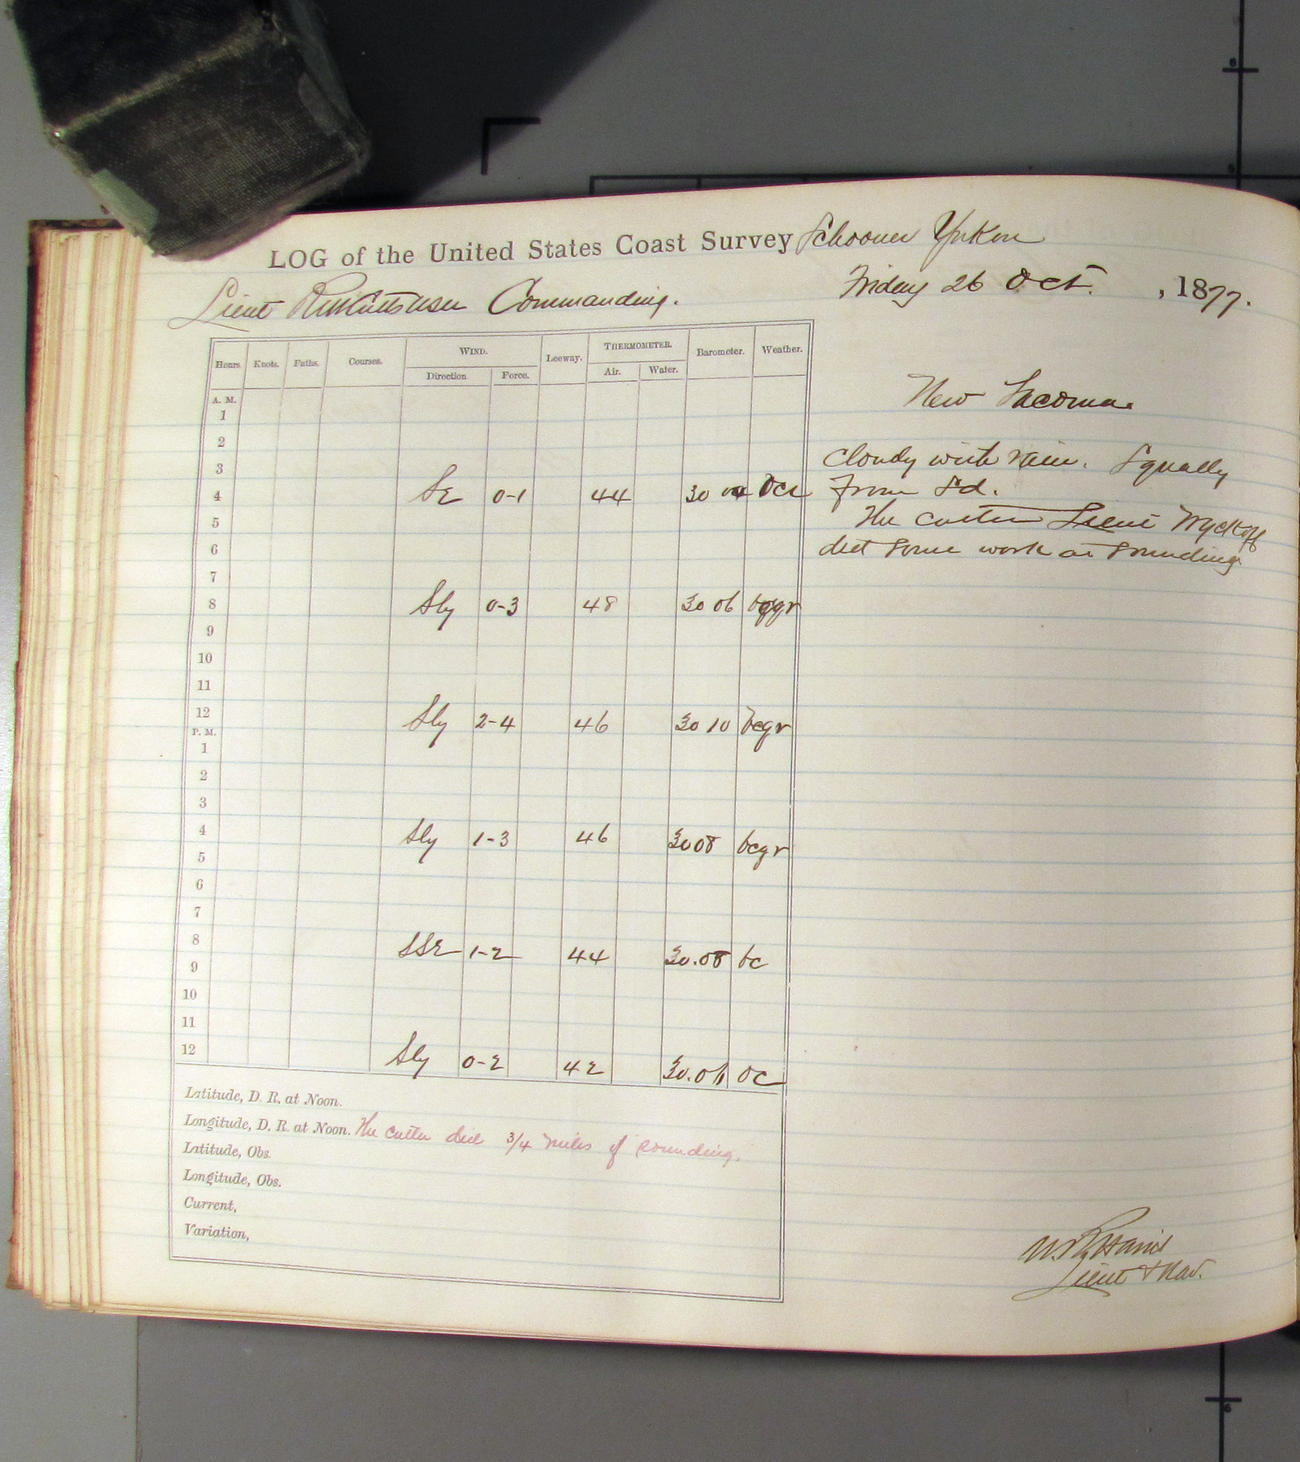 LOG of the United States Coast Survey Schooner Yukon
Lieut Commanding.
Friday 26 Oct. , 1877.
Hours. Knots. Faths. Courses. WIND. Leeway. THERMOMETER. Barometer. Weather.
Direction. Force. Air. Water.
A. M.
1
2
3
4 SE 0-1 44 30
5
6
7
8 Sly 0-3 48 30 06
9
10
11
12 Sly 2-4 46 30 10 bcqr
P. M.
1
2
3
4 Sly 1-3 46 3008 bcqr
5
6
7
8 SSE 1-2 44 30.08 bc
9
10
11
12 Sly 0-2 42 30.06 oc
Latitude, D. R. at Noon.
Longitude, D. R. at Noon. The cutter did 3/4 miles of sounding.
Latitude, Obs.
Longitude, Obs.
Current,
Variation,
New Tacoma
Cloudy with rain. Squally
from Sd.
The cutter Lieut Wyckoff
did some work at sounding
Lieut & Nav.